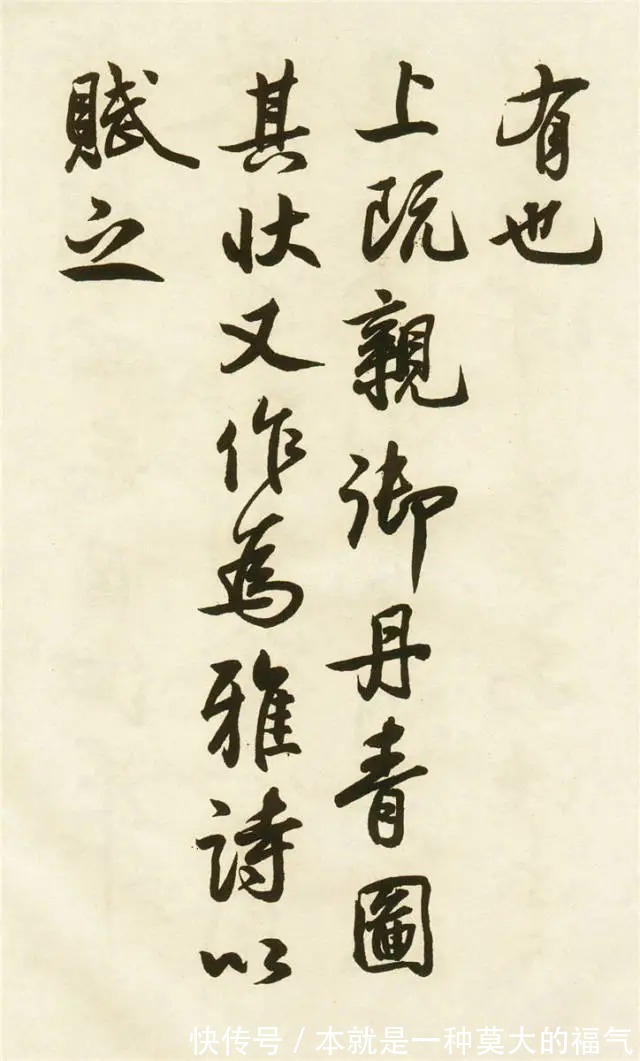 有也
上既親御丹青圖
其状又作為雅詩以
賦之
快传号/本就是一种莫大的福气